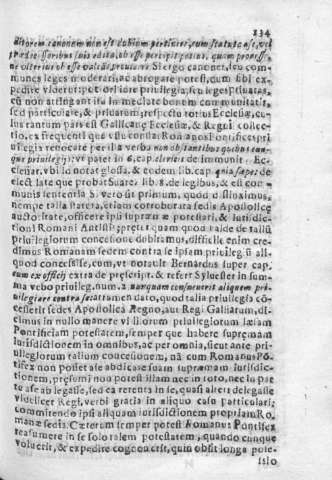 234
ditorem canonem non est dubium pertinere, cum statuta
suis edita, ab esse quam
esse Si ergo canones, seu com-
munes leges moderari, ac abrogare potest, cum libi ex-
pedire viderit: potiori iure priuilegia, seu leges priuatas,
cũ non attingant ita immediate bonum communitatis,
sed particulare, & priuatorum, respectu totius Ecclesiæ, cu-
ius tantum pars est Gallicanę Ecclesia, & Regni
tio, ex frequenti que vsu contra Roma nos Pontifices pri
uilegia reuocare per ista verba non obstantibus quibus cun-
que priuilegijs: vt patet in 6. cap. clericis de immunit. Ec-
clesiar. vbi id notat glossa, & eodem lib. cap. quia sæpe de
elect. late que probat Suarez lib. 8. de legibus, & est com-
munis sententia S. vero sit primum, quod diximus,
nempe talia statuta, etiam corroborata sede Apostolicę
auctoritate, officere ipsi supremæ potestati, & iurisdic-
tioni Romani Antistitis, præterquam quod valde de tallũ
priuilegiorum concessione dubitamus, difficile enim cre-
dimus Romanam sedem contra se ipsam priuileg ũ ali-
quod concessisse, cum, vt notauit Bernardus super cap.
cum ex officij extra de pręscript. & refert Syluester in sum-
ma verbo priuileg. num. 2. nunquam consueuerit aliquem pri-
uilegiare contra se: attamen dato, quod talia priuilegia cō-
cesserit sedes Apostolica Regno, aut Regi Galliarum, di-
cimus in nullo manere vi illorum priuilegiorum læsam
Pontificiam potestatem, semper que habere supręmam
iurisdictionem in omnibus, ac per omnia, sicut ante pri-
uilegiorum talium concessionem, nã cum Romanus Põ-
tifex non posset a se abdicare suam supramam iurisdic-
tionem, pręsumi non potest illam nec in toto, nec in par
te a se ablegasse, sed ea retenta in se, quasi alteri delegasse
videlicet Regi, verbi gratia in aliquo casu particulari,
committendo ipsi aliquam iurisdictionem propriam Ro-
manæ sedis. Cæterum semper potest Romanus Pontifex
reassumere in se solo talem potestatem, quando cunque
voluerit, & expedire cognouerit, quin obsit longa pote-